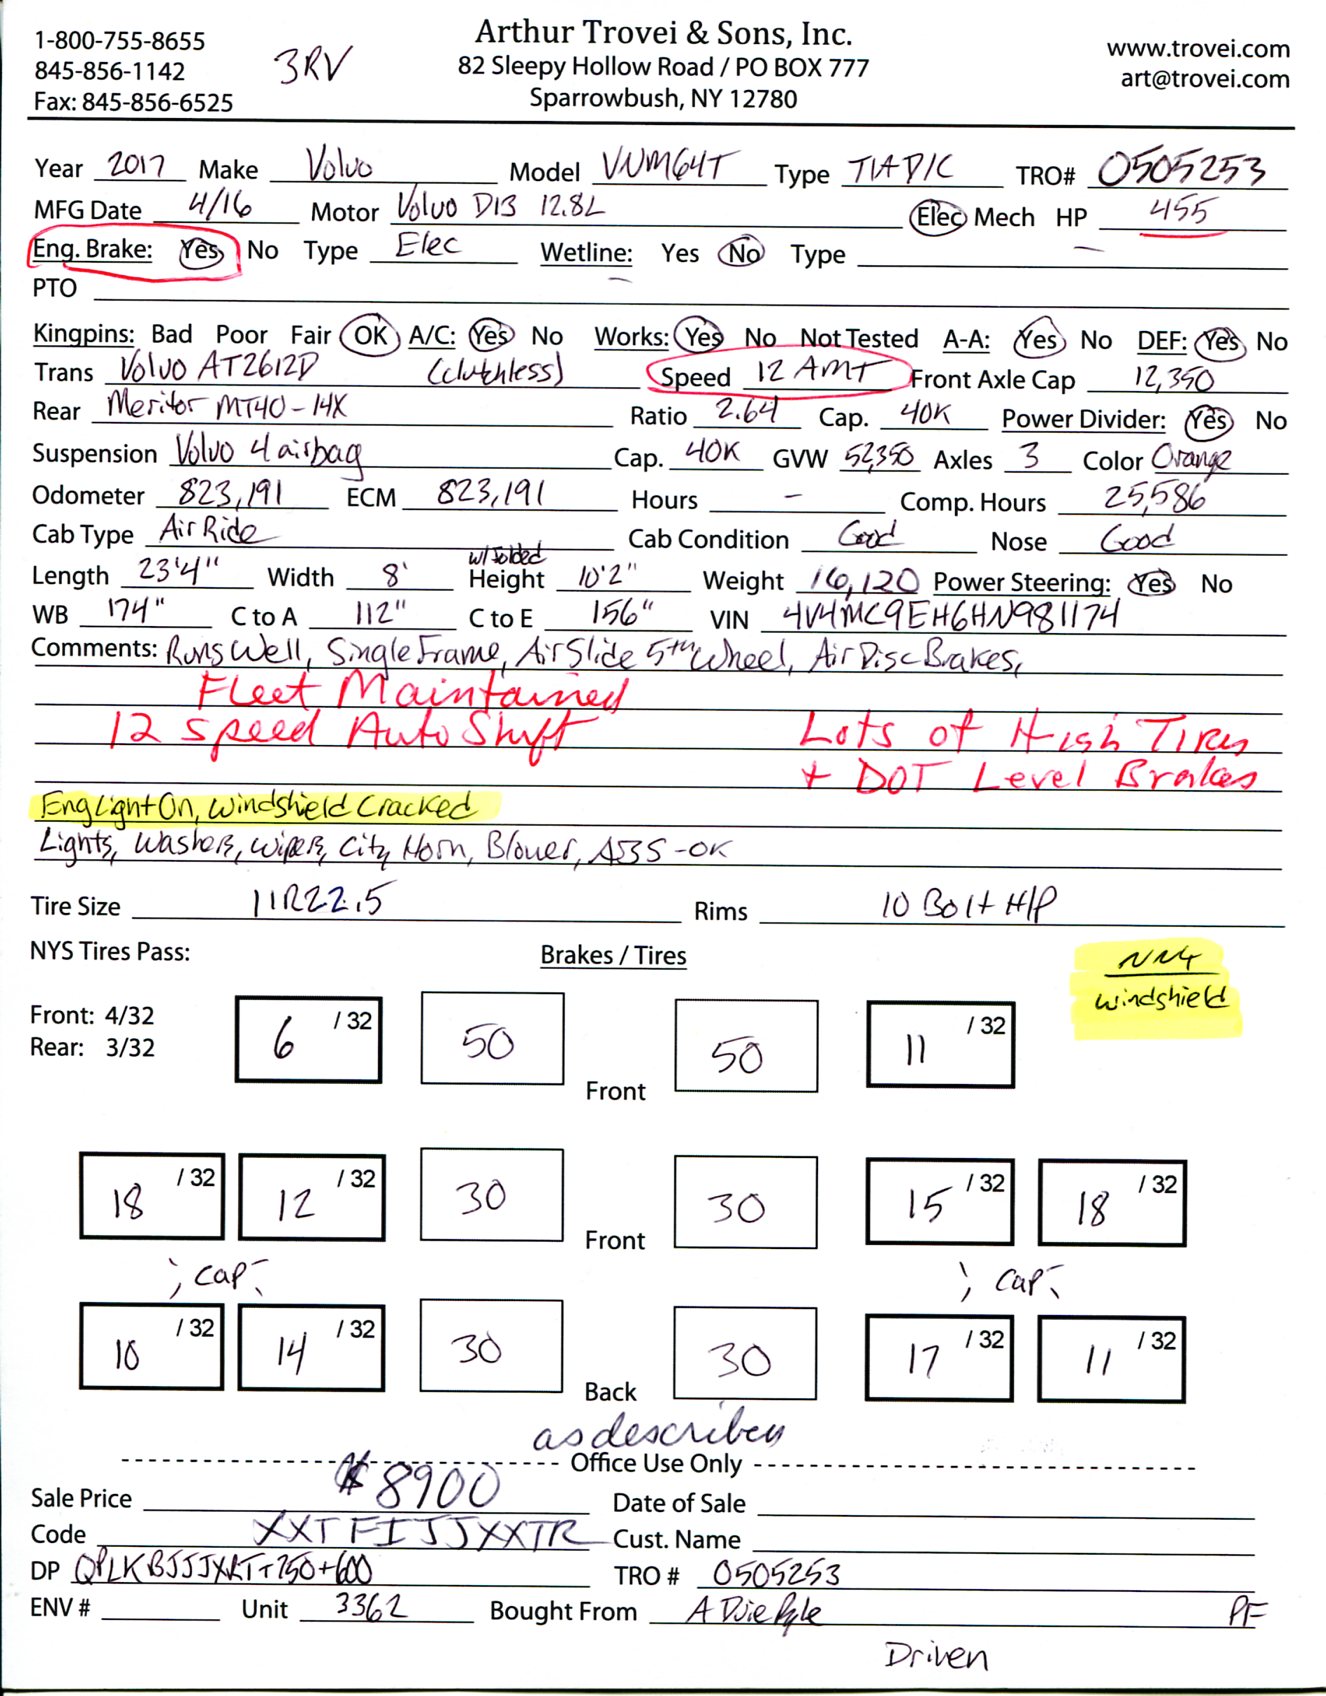 1-800-755-8655
845-856-1142
Fax: 845-856-6525
3RV
Arthur Trovei & Sons, Inc.
82 Sleepy Hollow Road / PO BOX 777
Sparrowbush, NY 12780
www.trovei.com
art@trovei.com
Year 2017 Make Volvo Model VNM64T Type T/A D/C TRO# 0505253
MFG Date 4/16 Motor Volvo D13 12.8L Elec Mech HP 455
Eng. Brake: Yes No Type Elec Wetline: Yes No Type
PTO
Kingpins: Bad Poor Fair OK A/C: Yes No Works: Yes No Not Tested A-A: Yes No DEF: Yes No
Trans Volvo AT2612D (clutchless) Speed 12 AMT Front Axle Cap 12,350
Rear Meritor MT40-14X Ratio 2.64 Cap. 40K Power Divider: Yes No
Suspension Volvo 4 airbag Cap. 40K GVW 52,350 Axles 3 Color Orange
Odometer 823,191 ECM 823,191 Hours - Comp. Hours 25,586
Cab Type Air Ride Cab Condition Good Nose Good
w/ folded
Length 23'4" Width 8' Height 10'2" Weight 16,120 Power Steering: Yes No
WB 174" C to A 112" C to E 156" VIN 4V4MC9EH6HN981174
Comments: Runs Well, Single Frame, Air Slide 5th Wheel, Air Disc Brakes,
Fleet Maintained
12 speed Auto Shift Lots of High Tires
+ DOT Level Brakes
Eng Light On, Windshield Cracked
Lights, Washers, Wipers, City Horn, Blower, ABS-OK
Tire Size 11R22.5 Rims 10 Bolt H/P
NYS Tires Pass: Brakes / Tires
windshield
Front: 4/32
Rear: 3/32
6 /32 50 Front 50 11 /32
18 /32 12 /32 30 Front 30 15 /32 18 /32
cap cap
10 /32 14 /32 30 Back 30 17 /32 11 /32
as described
Office Use Only
Sale Price $8900 Date of Sale
Code XXTFIJJXXTR Cust. Name
DP TRO # 0505253
ENV # Unit 3362 Bought From PF
Driven